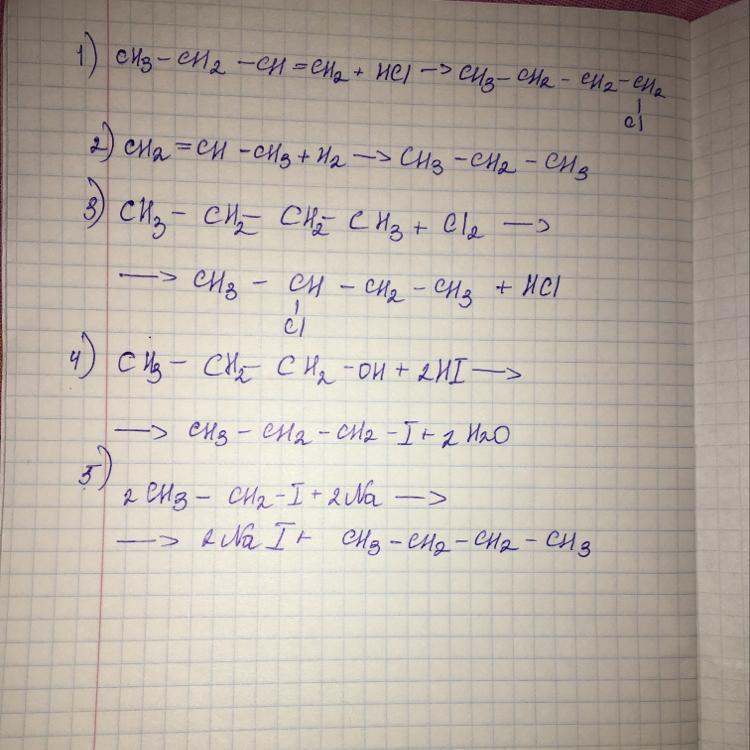 1) CH3 - CH2 - CH = CH2 + HCl → CH3 - CH2 - CH2 - CH2
Cl
2) CH2 = CH - CH3 + H2 → CH3 - CH2 - CH3
3) CH3 - CH2 - CH2 - CH3 + Cl2 →
→ CH3 - CH - CH2 - CH3 + HCl
Cl
4) CH3 - CH2 - CH2 - OH + 2HI →
→ CH3 - CH2 - CH2 - I + 2H2O
5)
2CH3 - CH2 - I + 2Na →
→ 2NaI + CH3 - CH2 - CH2 - CH3